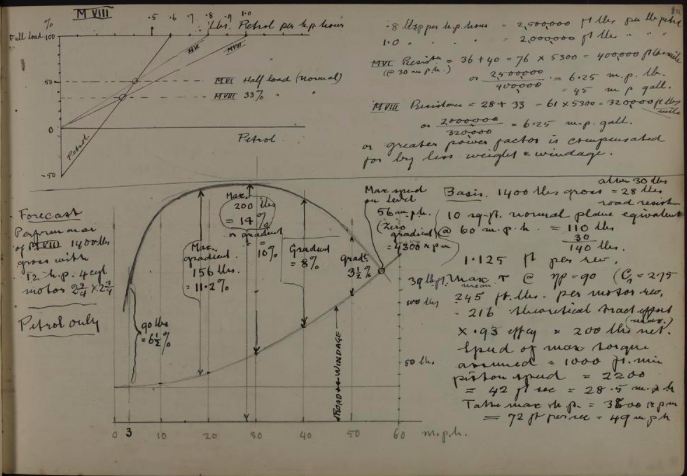 %
M VIII
·5 ·6 ·7 ·8 ·9 1·0 Lbs. Petrol per h.p. hour
Full load 100
50
0
-50
Petrol
M VI Half Load (Normal)
M VIII 33%
Petrol
·8 lbs per h.p. hour = 2,500,000 ft lbs per lb petrol
1·0 " " " = 2,000,000 ft lbs " "
M VI Resistce = 36 + 40 = 76 × 5300 = 400000 ft lbs mile
(@ 30 m.p.h.)
or 2500000 / 400000 = 6·25 m.p. lb.
= 45 m.p gall.
M VIII Resistance = 28 + 33 = 61 × 5300 = 320000 ft lbs mile
or 2000000 / 320000 = 6·25 m.p. gall.
or greater power factor is compensated
for by less weight & windage.
Forecast
Performance
of M VIII 1400 lbs
gross with
12 h.p. 4 cyl
motor
Petrol only
90 lbs
= 6½ %
Max.
gradient
156 lbs.
= 11·2 %
Max.
200 lbs
= 14 %
or gradient
10%
Gradient
= 8%
Grad.
3½ %
Max speed
on Level
56 m.p.h.
(Zero
gradient)
= 4300 r p m
ROAD + WINDAGE
100 lbs
50 lbs
0 3 10 20 30 40 50 60 m.p.h.
Basis. 1400 lbs gross = 28 lbs
road resistce
10 sq. ft. normal plane equivalent
@ 60 m.p.h. = 110 lbs
30
140 lbs.
1·125 ft per rev.
Max T @ ηp = 90
mean
245 ft. lbs. per motor rev.
= 216 theoretical tract effort
(max.)
× ·93 effcy = 200 lbs net.
Speed of max torque
assumed = 1000 ft. min
piston speed = 2200
= 42 ft sec = 28·5 m.p.h
Take max h.p. = 3800 r p m
= 72 ft per sec = 49 m.p.h